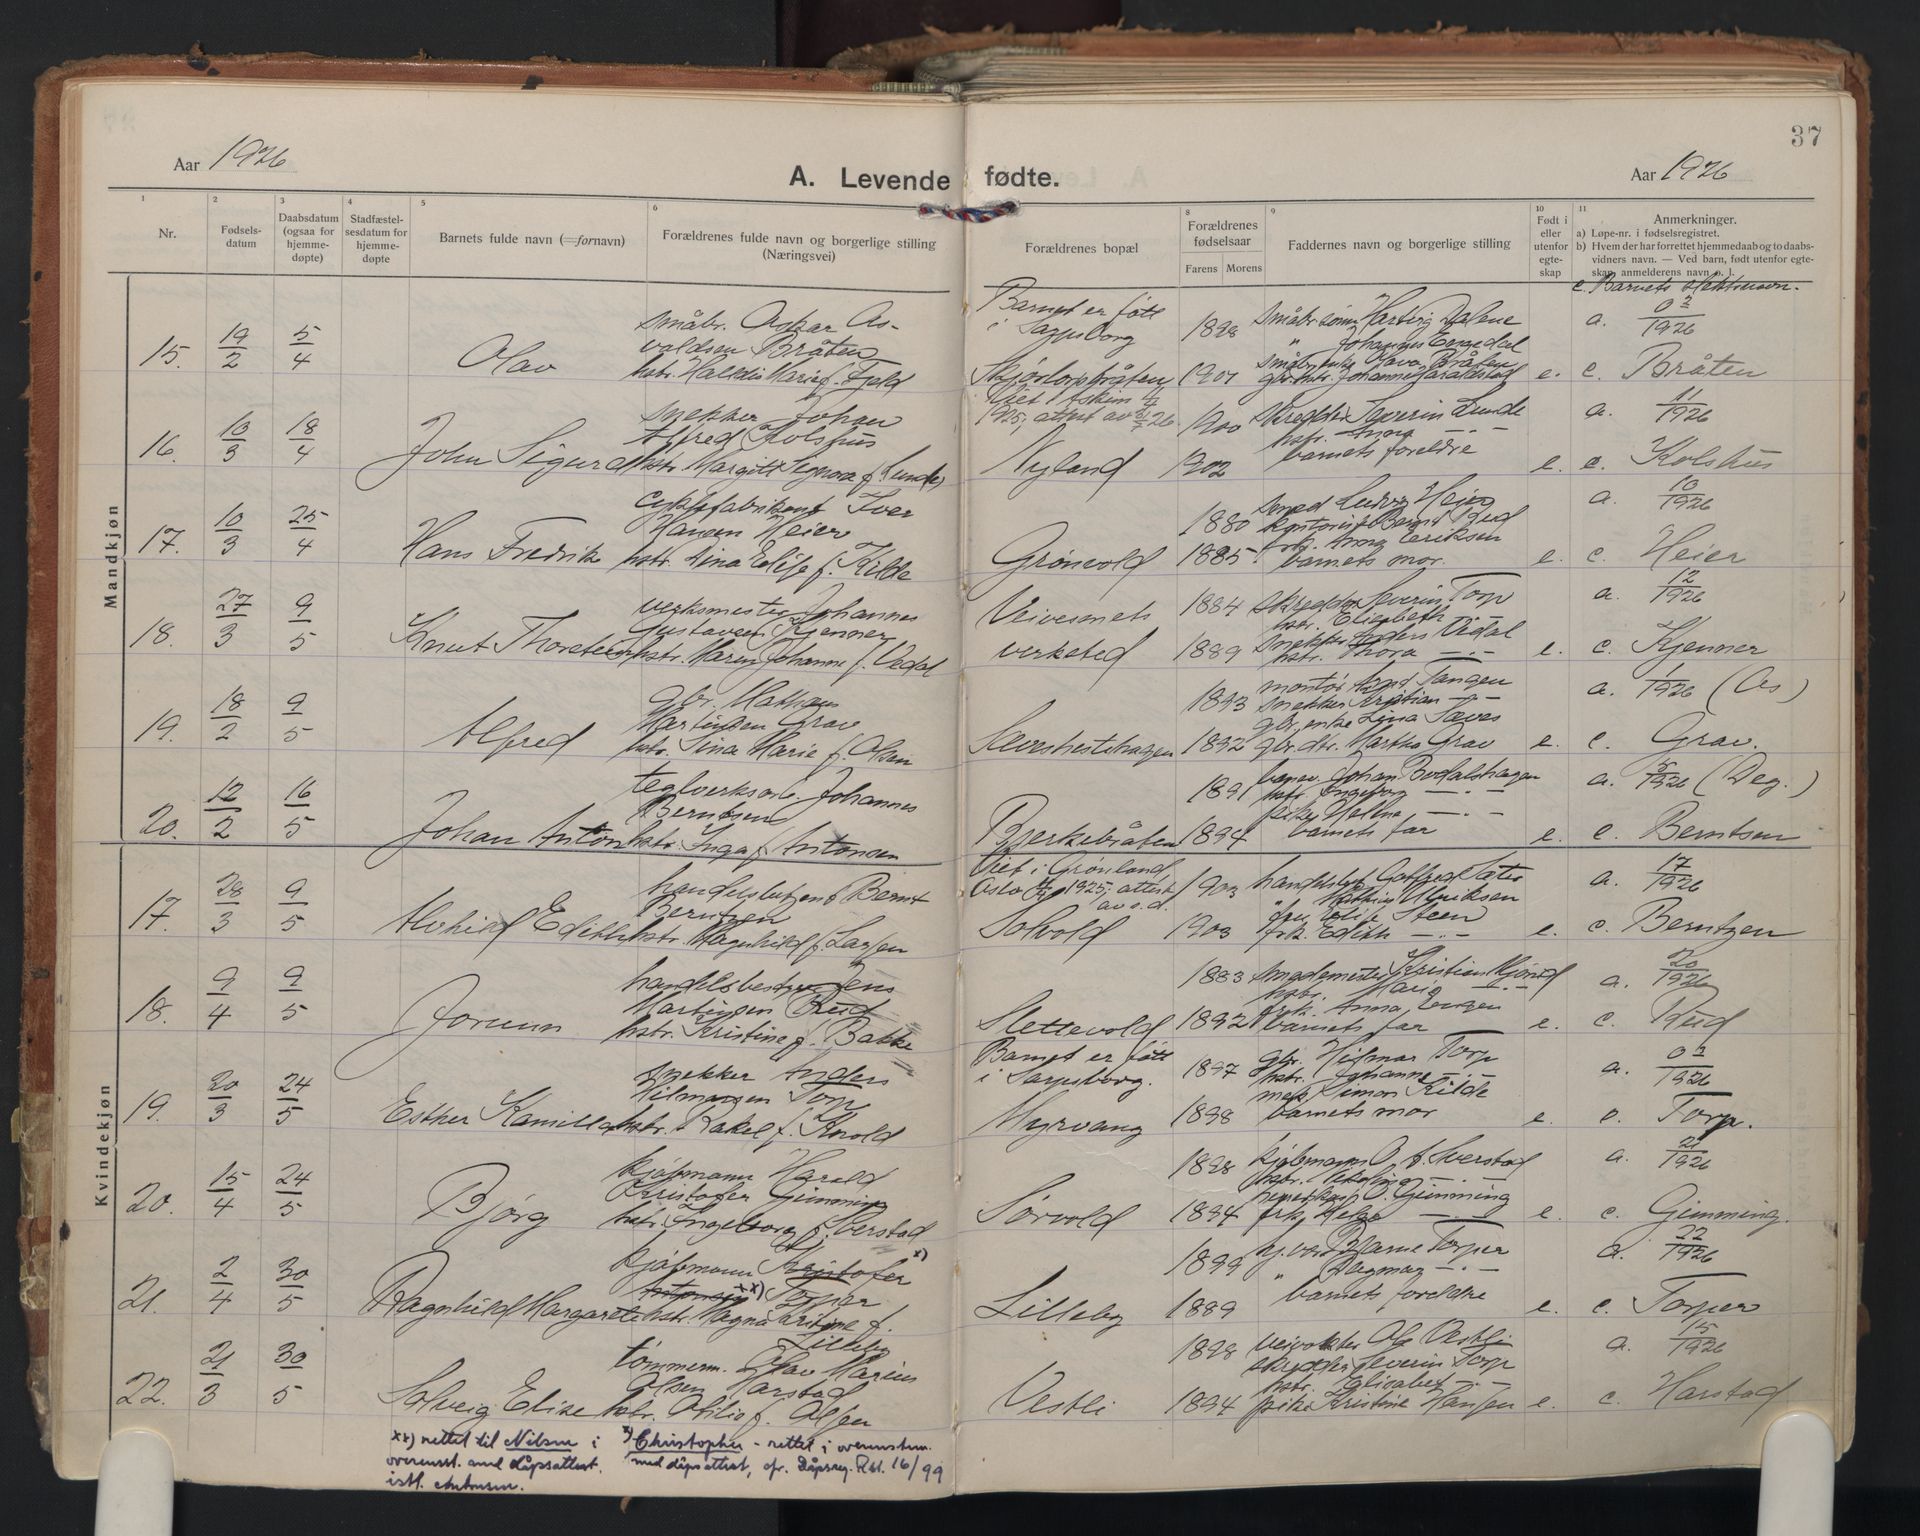 37
Aar 1926
A. Levende fødte.
Aar 1926
1 2 3 4 5 6 8 9 10 11
Nr.
Fødsels-
datum
Daabsdatum
(ogsaa for
hjemme-
døpte)
Stadfæstel-
sesdatum for
hjemme-
døpte
Barnets fulde navn (=fornavn)
Forældrenes fulde navn og borgerlige stilling
(Næringsvei)
Forældrenes bopæl
Forældrenes
fødselsaar
Farens Morens
Faddernes navn og borgerlige stilling
Født i
eller
utenfor
egte-
skap
Anmerkninger.
a) Løpe-nr. i fødselsregistret.
b) Hvem der har forrettet hjemmedaab og to daabs-
vidners navn. — Ved barn, født utenfor egte-
skap, anmelderens navn o. l.
c. Barnets slektsnavn.
Mandkjøn
15. 19/2 5/4 Olav
småbr. Oskar As-
valdsen Bråten
hstr. Halldis Marie f. Fjeld
Barnet er født
i Sarpsborg
1898
småbr.sønn Hartvig Dalene
" Johannes Engedal
a. 1926
e. c. Bråten
16. 10/3 18/4 John Sigurd
snekker Johan
Alfred Kolshus
hstr. Margit f. Lunde
Nyland
1900
1902
skredder Severin Lunde
hstr. Anna -·-
barnets foreldre
a. 11/1926
e. c. Kolshus
17. 10/3 25/4 Hans Fredrik
cykkelfabrikant Iver
Hansen Heier
hstr. Lina Elise f. Kilde
Grönvold
1880
1885.
smed Ludvig Heier
kontorist Bernt Rud
frk. Anna Eriksen
barnets mor.
a. 10/1926
e. c. Heier
18. 27/3 9/5 Knut Thorstein
verksmester Johannes
Gustavsen Kjenner
hstr. Maren Johanne f. Vedal
Veivesnets
verksted
1884
1889
skredder Severin Torp
hstr. Elisabeth -·-
snekker Anders Vedal
hstr. Thora -·-
a. 12/1926
e. c. Kjenner
19. 18/2 9/5 Alfred
gbr. Mathias
Martinsen Grav
hstr. Lina Marie f. Olsen
1893
1892
montör Arnt Tangen
snekker Kristian -·-
gbr.enke Lina
gbr.dtr. Martha Grav
a. 1/1926 (Ås)
e. c. Grav.
20. 12/2 16/5 Johan Anton
teglverksarb. Johannes
Berntsen
hstr. Inga f. Antonsen
Bjerkebråten
1891
1894
Johan Bødalshagen
hstr. Ingeborg -·-
pike Helene -·-
barnets far
a. 5/1926 (Deg.)
e. c. Berntsen
Kvindekjøn
17. 28/3 9/5 Alvhild Edith
handelsbetjent Bernt
Berntzen
hstr. Ragnhild f. Larsen
Viet i Grönland,
Oslo 1925, attest
av s.d.
Solvold
1903
1903
Mathias Ulriksen
fru Elise Steen
frk. Edith -·-
a. 17/1926
e. c. Berntzen
18. 9/4 9/5 Jorunn
handelsbestyrer Jens
Martinsen Rud
hstr. Kristine f. Bakke
Slettevold
1883
1892
smedmester Kristian
hstr. Marie -·-
frk. Anna Engen
barnets far
a. 20/1926
e. c. Rud
19. 20/3 24/5 Esther Kamilla
snekker Anders
Hilmarsen Torp
hstr. Rakel f. Kvold
Barnet er født
i Sarpsborg.
Myrvang
1897
1898
gbr. Hilmar Torp
hstr. Johanne -·-
mek. Simon Kilde
barnets mor
a. 1926
e. c. Torp.
20. 15/4 24/5 Bjørg
kjøbmann Harald
Kristofer Gimming
hstr. Ingeborg f. Sverstad
Sörvold
1898
1894
kjøbmann O. A. Sverstad
O. Gimming
frk. Helga -·-
a. 21/1926
e. c. Gimming.
21. 2/4 30/5 Ragnhild Margarete
kjøbmann Kristofer x)
Antonsen xx) Torper
hstr. Magna Kristine f.
Lilleby
Lilleby
1899
1889
Bjarne Torper
" Dagmar -·-
barnets foreldre
a. 22/1926
e. c. Torper
22. 21/3 30/5 Solveig Elise
tømmerm. Olav Marius
Olsen Harstad
hstr. Otilie f. Olsen
Vestli
1898
1894
veivokter Ole Vestli
skredder Severin Torp
hstr. Elisabet -·-
pike Kristine Hansen
a. 15/1926
e. c. Harstad
xx) rettet til Nilsen i
overenst. med dåpsattest.
istf. Antonsen.
x) Christopher - rettet i overenstem.
med dåpsattest, cfr. Dåpsreg. Rkl. 16/99